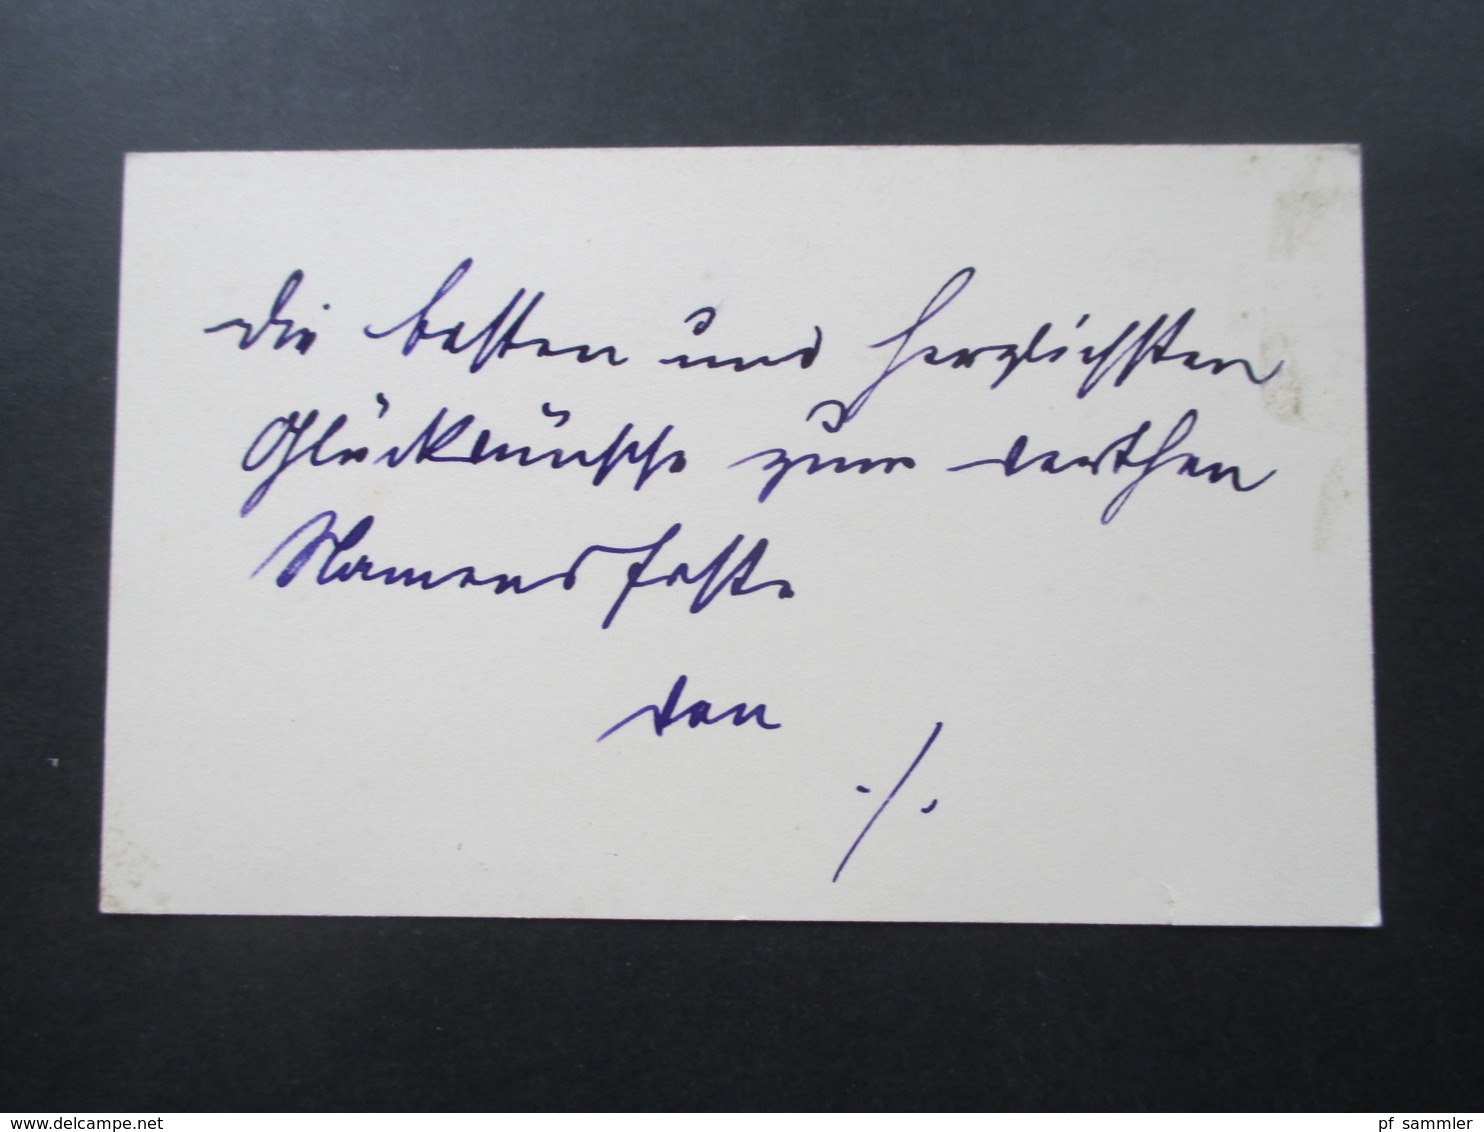 die besten und herzlichsten
Glückwünsche zum werthen
Namensfeste
von
./.
www.delcampe.net
pf_sammler